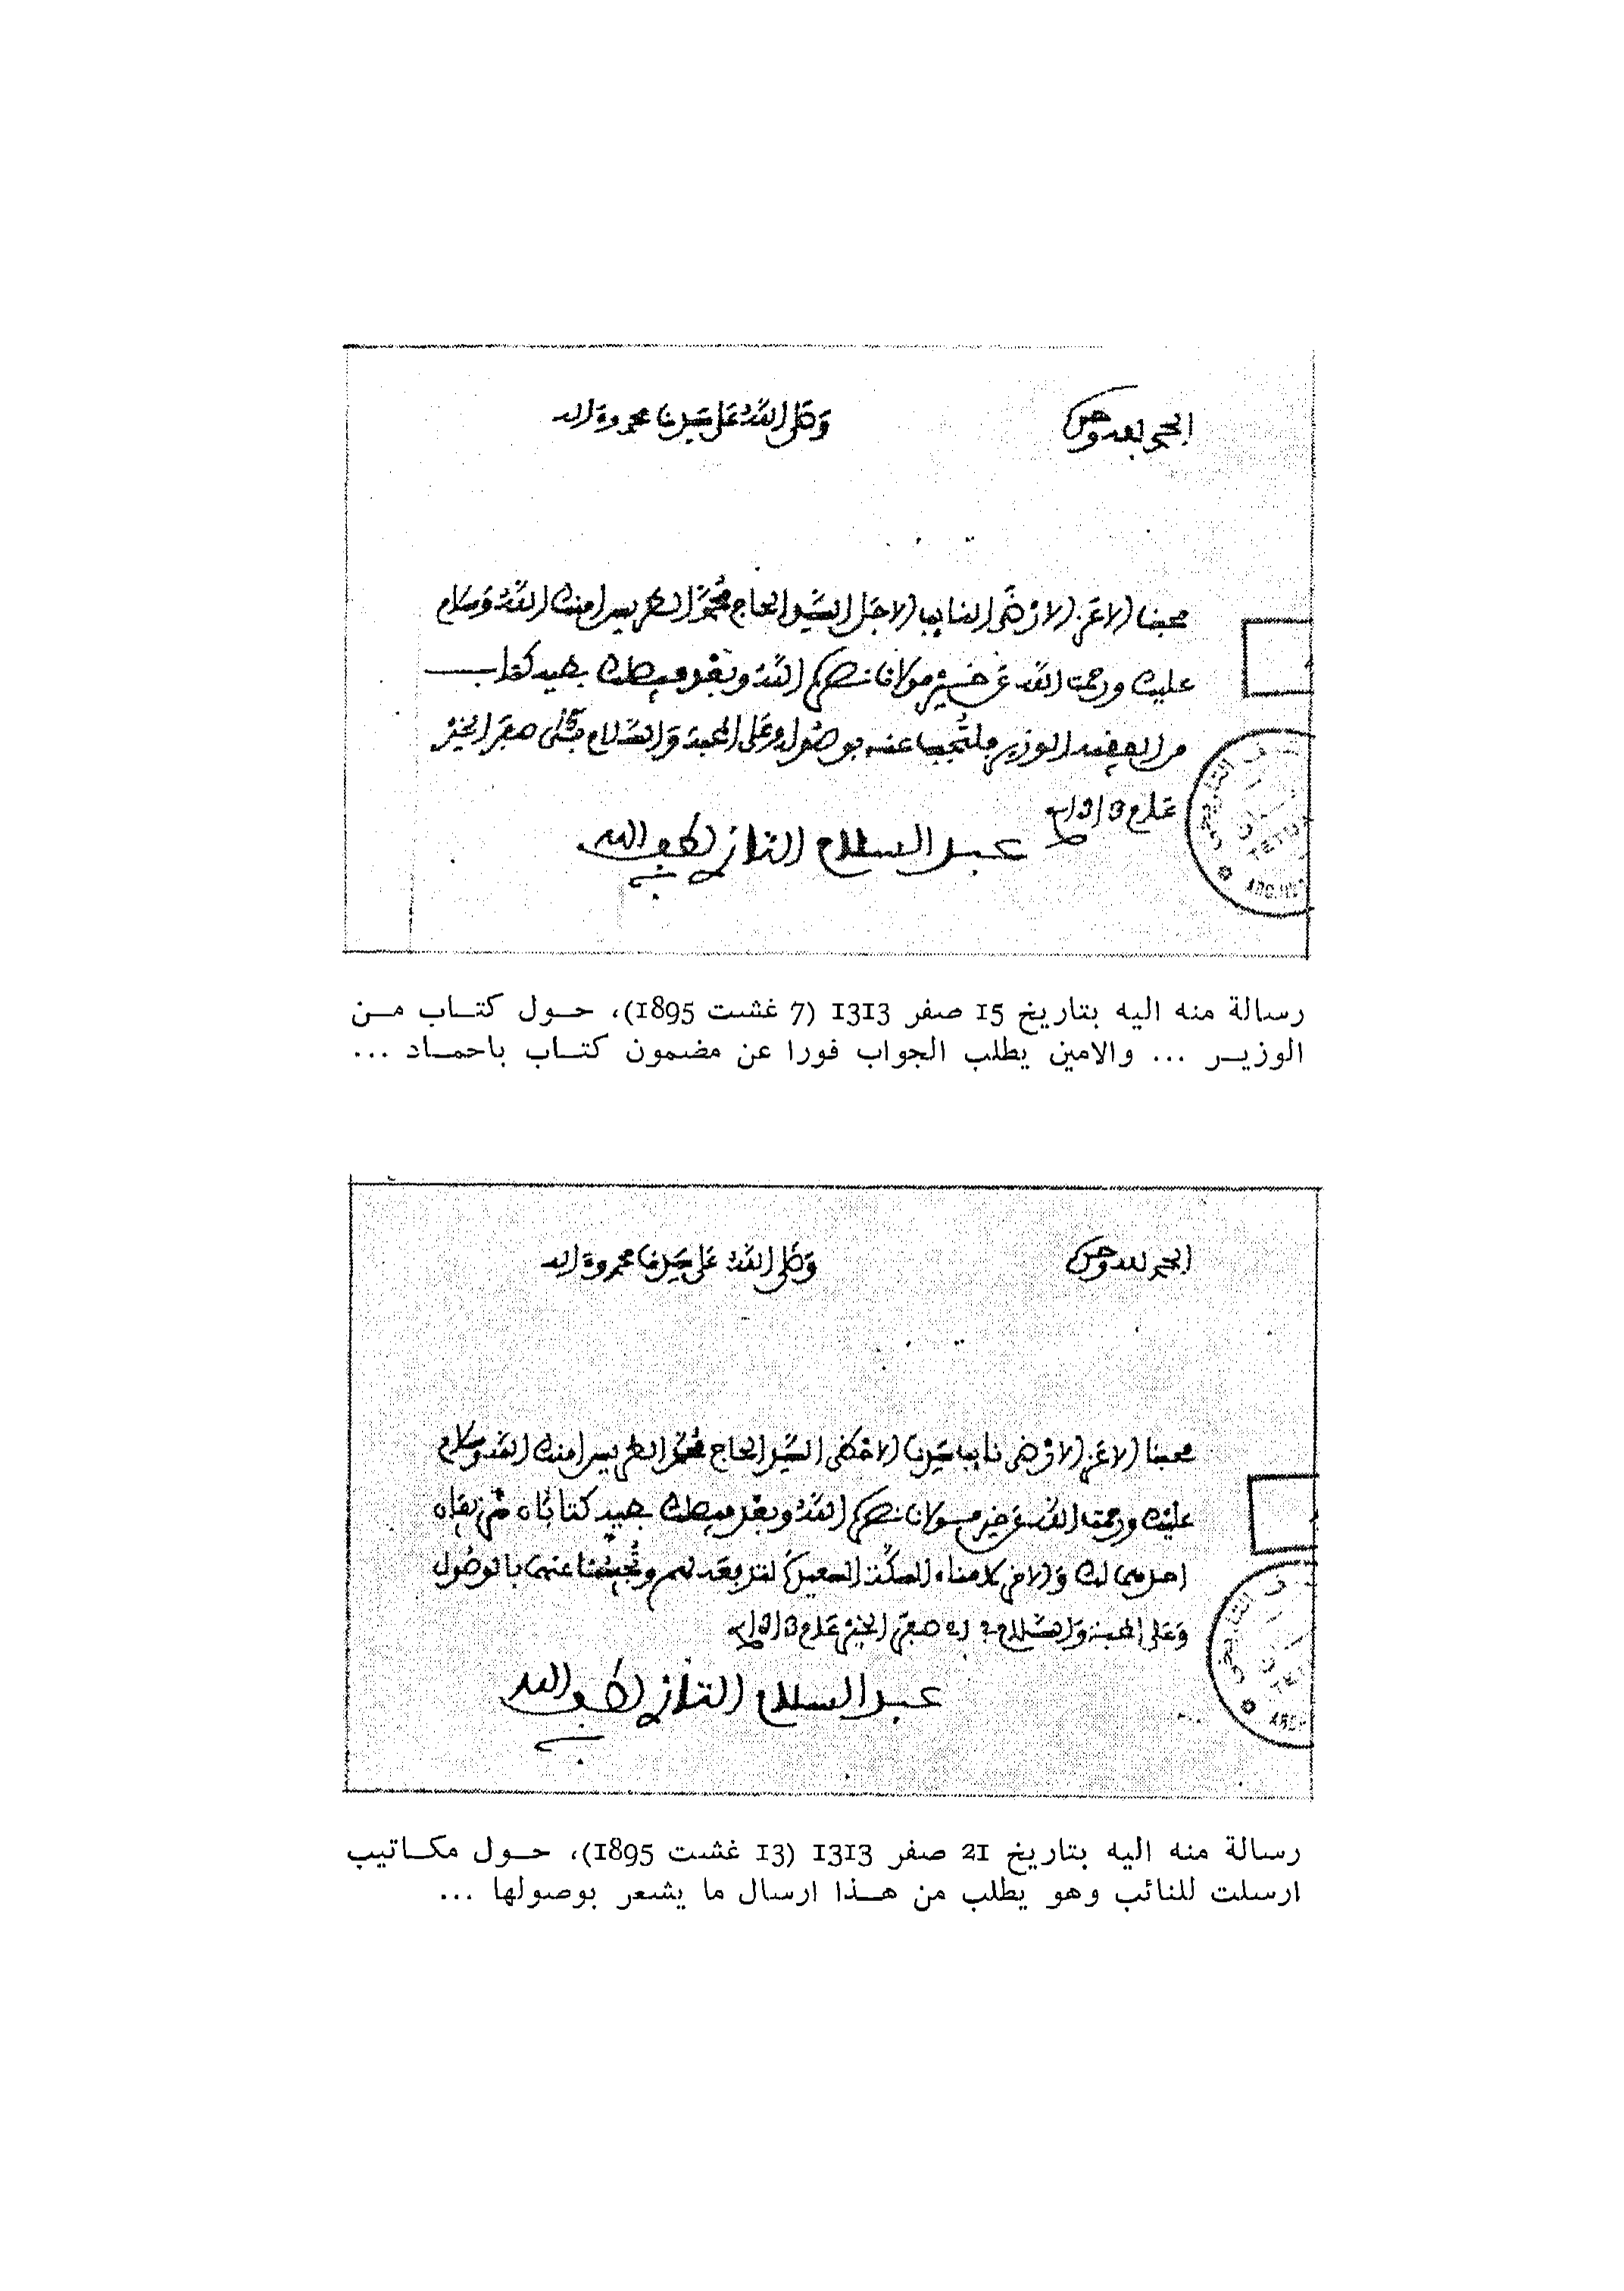 الحمد لله وحده
وصلى الله على سيدنا محمد وءاله
محبنا الاعز الارضى النايب الاجل السيد الحاج محمد الطريس امنك الله وسلام
عليك ورحمت الله عن خير مولانا نصره الله وبعد فيصلك طيه كتاب
من الفقيه الوزير فلتجب عنه بوصوله وعلى المحبة والسلام في صفر الخير
عام 1313
عبد السلام التازي لطف الله به
رسالة منه اليه بتاريخ 15 صفر 1313 (7 غشت 1895)، حول كتاب من
الوزير ... والامين يطلب الجواب فورا عن مضمون كتاب باحماد ...
الحمد لله وحده
وصلى الله على سيدنا محمد وءاله
محبنا الاعز الارضى نايب سيدنا الاحظى السيد الحاج محمد الطريس امنك الله وسلام
عليك ورحمت الله عن خير مولانا نصره الله وبعد فيصلك طيه كتابان شريفان
احدهما لك والاخر لامناء المعين لتدفعه لهم وتجيبنا عنهما بالوصول
وعلى المحبة والسلام في 21 صفر الخير عام 1313
عبد السلام التازي لطف الله به
رسالة منه اليه بتاريخ 21 صفر 1313 (13 غشت 1895)، حول مكاتيب
ارسلت للنائب وهو يطلب من هذا ارسال ما يشعر بوصولها ...